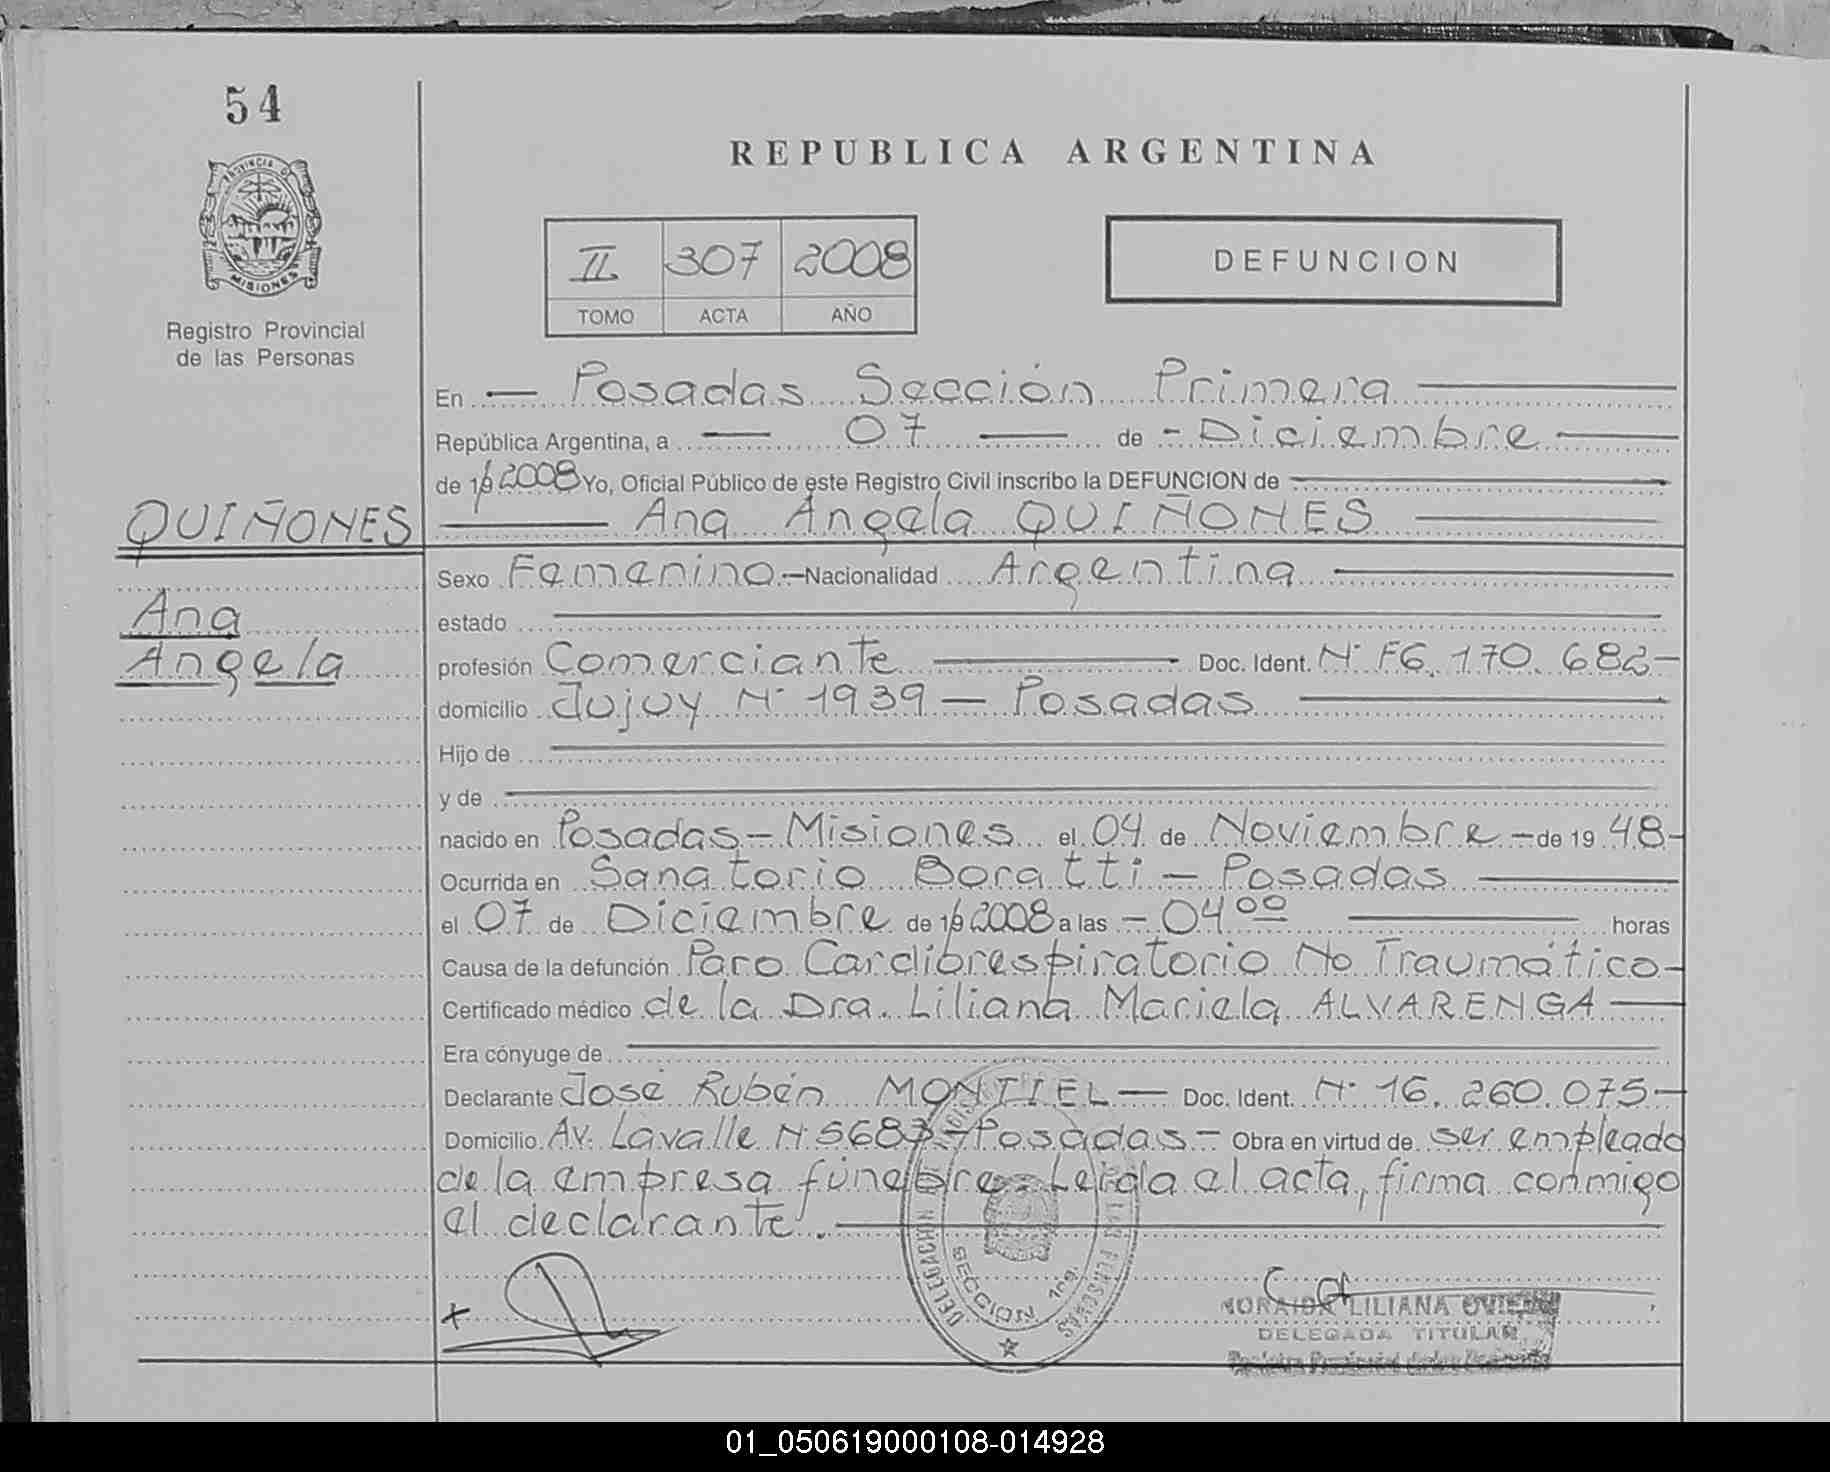 54
PROVINCIA DE
MISIONES
Registro Provincial
de las Personas
REPUBLICA ARGENTINA
II 307 2008
TOMO ACTA AÑO
DEFUNCION
En — Posadas Sección Primera
República Argentina, a — 07 — de - Diciembre
de 19 2008 Yo, Oficial Público de este Registro Civil inscribo la DEFUNCION de
QUIÑONES
Ana Angela QUIÑONES
Sexo Femenino.- Nacionalidad Argentina
estado
Ana
Angela
profesión Comerciante Doc. Ident. N° F6.170.682-
domicilio Jujuy N° 1939 — Posadas
Hijo de
y de
nacido en Posadas - Misiones el 04 de Noviembre - de 19 48-
Ocurrida en Sanatorio Boratti - Posadas
el 07 de Diciembre de 19 2008 a las - 04 00 horas
Causa de la defunción Paro Cardiorespiratorio No Traumático-
Certificado médico de la Dra. Liliana Mariela ALVARENGA
Era cónyuge de
Declarante José Rubén MONTIEL — Doc. Ident. N° 16.260.075-
Domicilio Av. Lavalle N° 5683 - Posadas - Obra en virtud de ser empleado
de la empresa fúnebre. Leída el acta, firma conmigo
el declarante.
DELEGACION
LAS PERSONAS
SECCION 1ra.
LILIANA
DELEGADA TITULAR
01_050619000108-014928